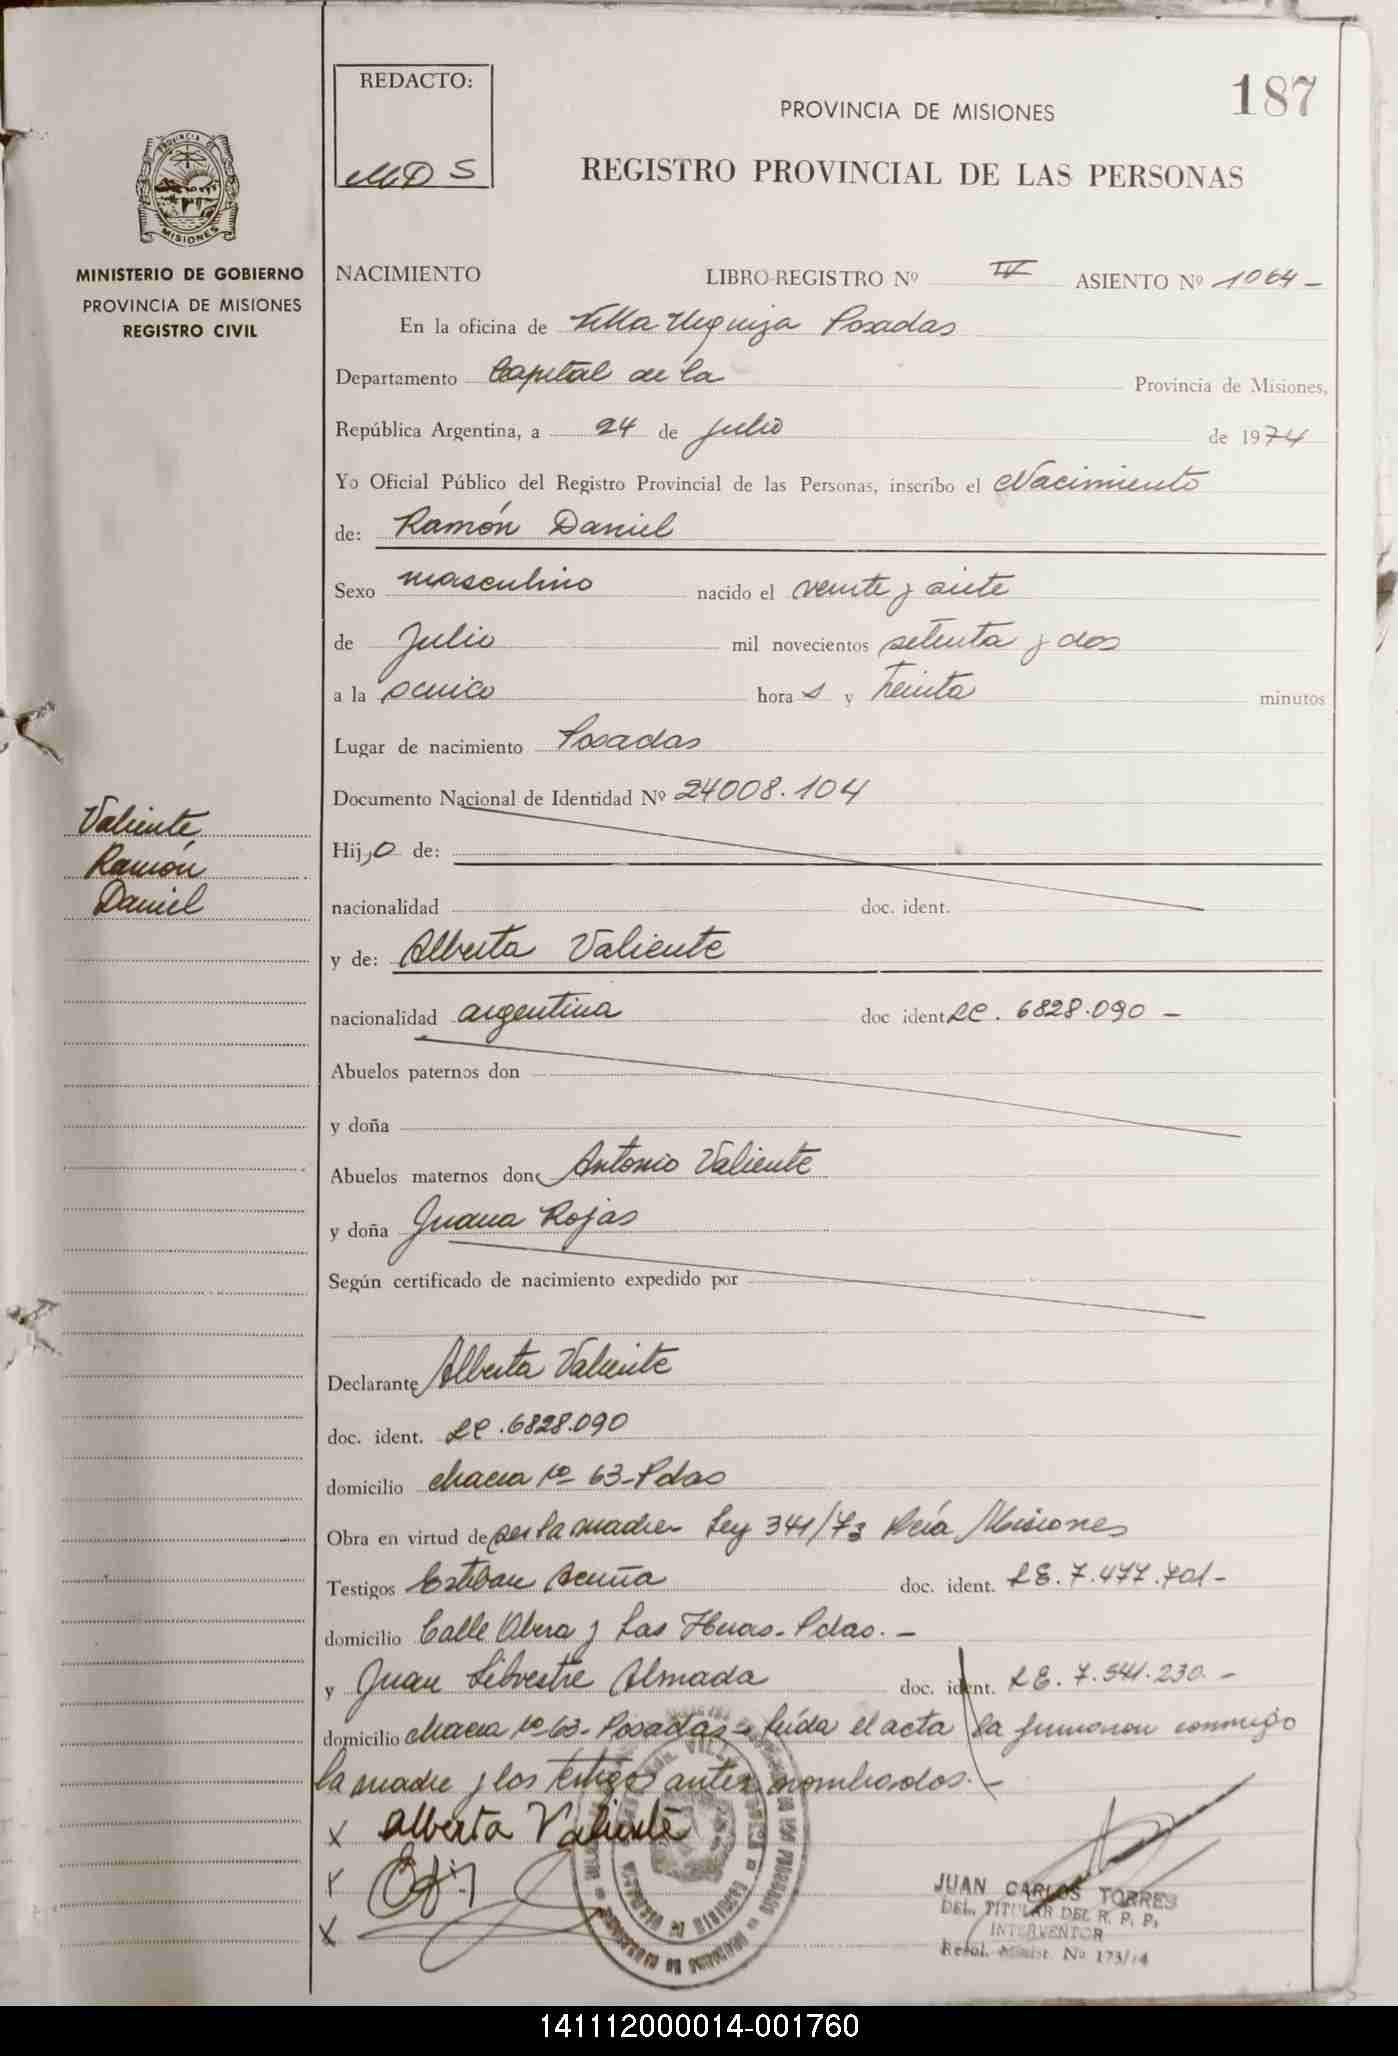 187
REDACTO:
MDS
PROVINCIA DE MISIONES
REGISTRO PROVINCIAL DE LAS PERSONAS
PROVINCIA DE
MISIONES
MINISTERIO DE GOBIERNO
PROVINCIA DE MISIONES
REGISTRO CIVIL
NACIMIENTO LIBRO-REGISTRO Nº IV ASIENTO Nº 1064-
En la oficina de Villa Urquiza Posadas
Departamento Capital de la Provincia de Misiones,
República Argentina, a 24 de julio de 1974
Yo Oficial Público del Registro Provincial de las Personas, inscribo el Nacimiento
de: Ramón Daniel
Sexo masculino nacido el veinte y siete
de Julio mil novecientos setenta y dos
a la hora s y treinta minutos
Lugar de nacimiento Posadas
Documento Nacional de Identidad Nº 24008.104
Valiente
Ramón
Daniel
Hijo de:
nacionalidad doc. ident.
y de: Alberta Valiente
nacionalidad argentina doc ident LC. 6828.090 -
Abuelos paternos don
y doña
Abuelos maternos don Antonio Valiente
y doña Juana Rojas
Según certificado de nacimiento expedido por
Declarante Alberta Valiente
doc. ident. LC.6828.090
domicilio chacra Nº 63-Pdas
Obra en virtud de ser la madre- Ley 341/73 Pcia Misiones
Testigos Esteban Acuña doc. ident. LE. 7.477.701-
domicilio Calle Obera y Las Heras-Pdas.-
y Juan Silvestre Almada doc. ident. LE. 7.541.230-
domicilio chacra Nº 63-Posadas- leída el acta la firmaron conmigo
la madre y los testigos antes nombrados.-
x Alberta Valiente
x
x
JUAN CARLOS TORRES
DEL. TITULAR DEL R. P. P.
INTERVENTOR
Resol. Minist. Nº 173/74
141112000014-001760